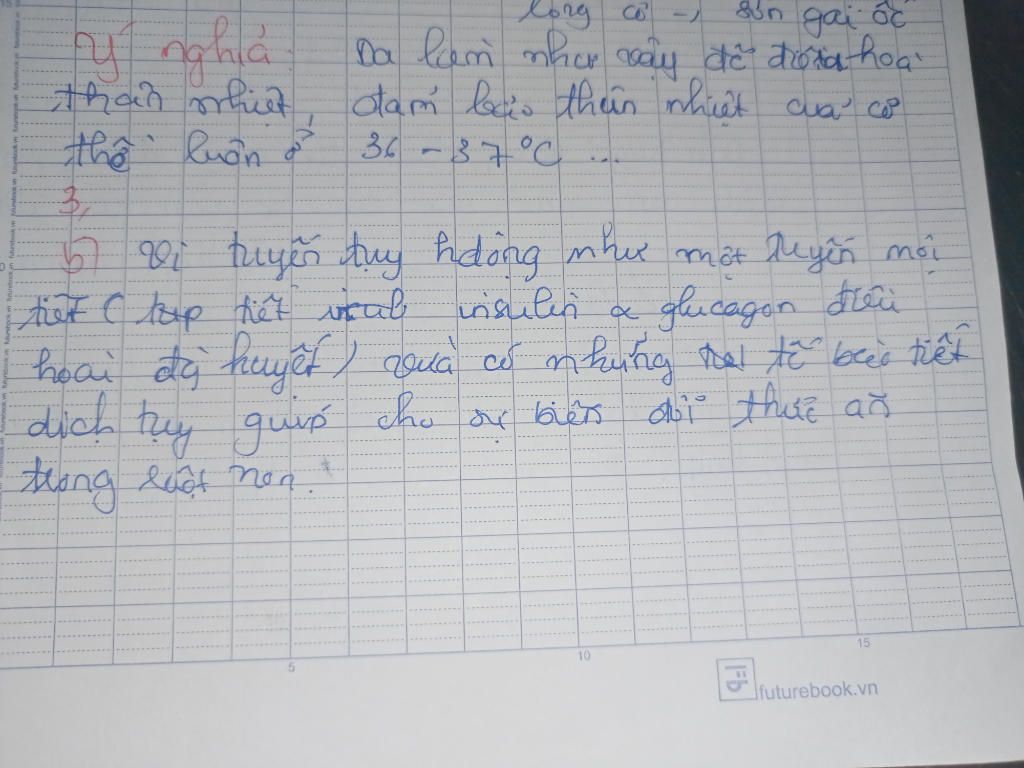 lông co -, sởn gai ốc
Ý nghĩa: Da làm như vậy để điều hoà
thân nhiệt, đảm bảo thân nhiệt của cơ
thể luôn ở 36 - 37°C ...
3,
b) Vì tuyến tụy hđộng như một tuyến nội
tiết ( tiết insulin & glucagon điều
hoà đg huyết) vừa có những tb bài tiết
dịch tụy giúp cho sự biến đổi thức ăn
trong ruột non.
5 10 15
futurebook.vn